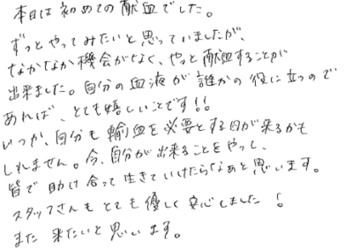 本日は初めての献血でした。
ずっとやってみたいと思っていましたが、
なかなか機会がなく、やっと献血することが
出来ました。自分の血液が誰かの役に立つので
あれば、とても嬉しいことです!!
いつか、自分も輸血を必要とする日が来るかも
しれません。今、自分が出来ることをやっし、
皆で助け合って生きていけたらなあと思います。
スタッフさんもとても優しく安心しました!
また来たいと思います。